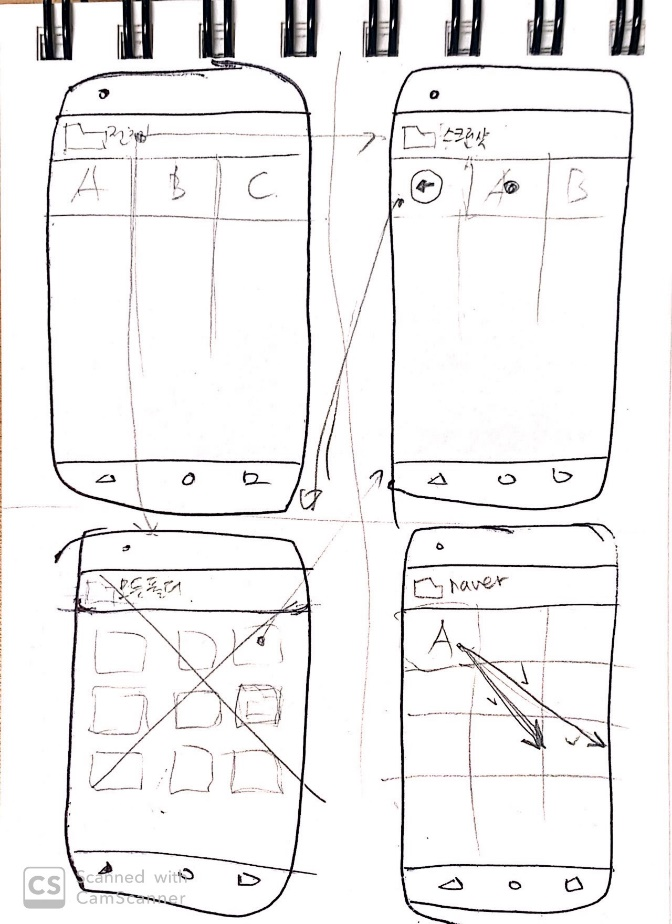 스크린샷
A B C
A B
모든폴더
naver
A
CS Scanned with
CamScanner